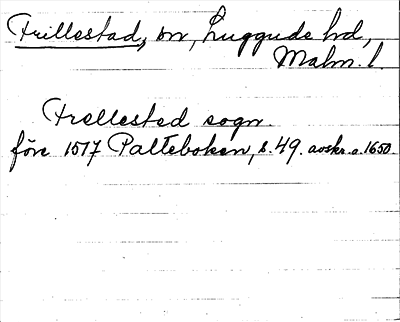 Frillestad, sn, Luggude hd,
Malm. l.
Frellested sogn.
före 1517 Palteboken, s. 49. avskr. o. 1650.